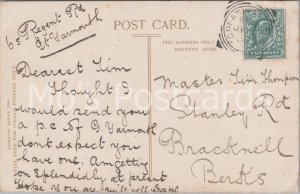 65 Regent Rd
Gt Yarmouth
POST CARD.
THE ADDRESS ONLY
WRITTEN HERE
Dearest Tim
Thought I
would send you
a p.c. of G. Yarmouth
dont expect you
have one. Am getting
on Splendidly at present
hope you are
Master Tim Thompson
Stanley Rd
Bracknell
Berks